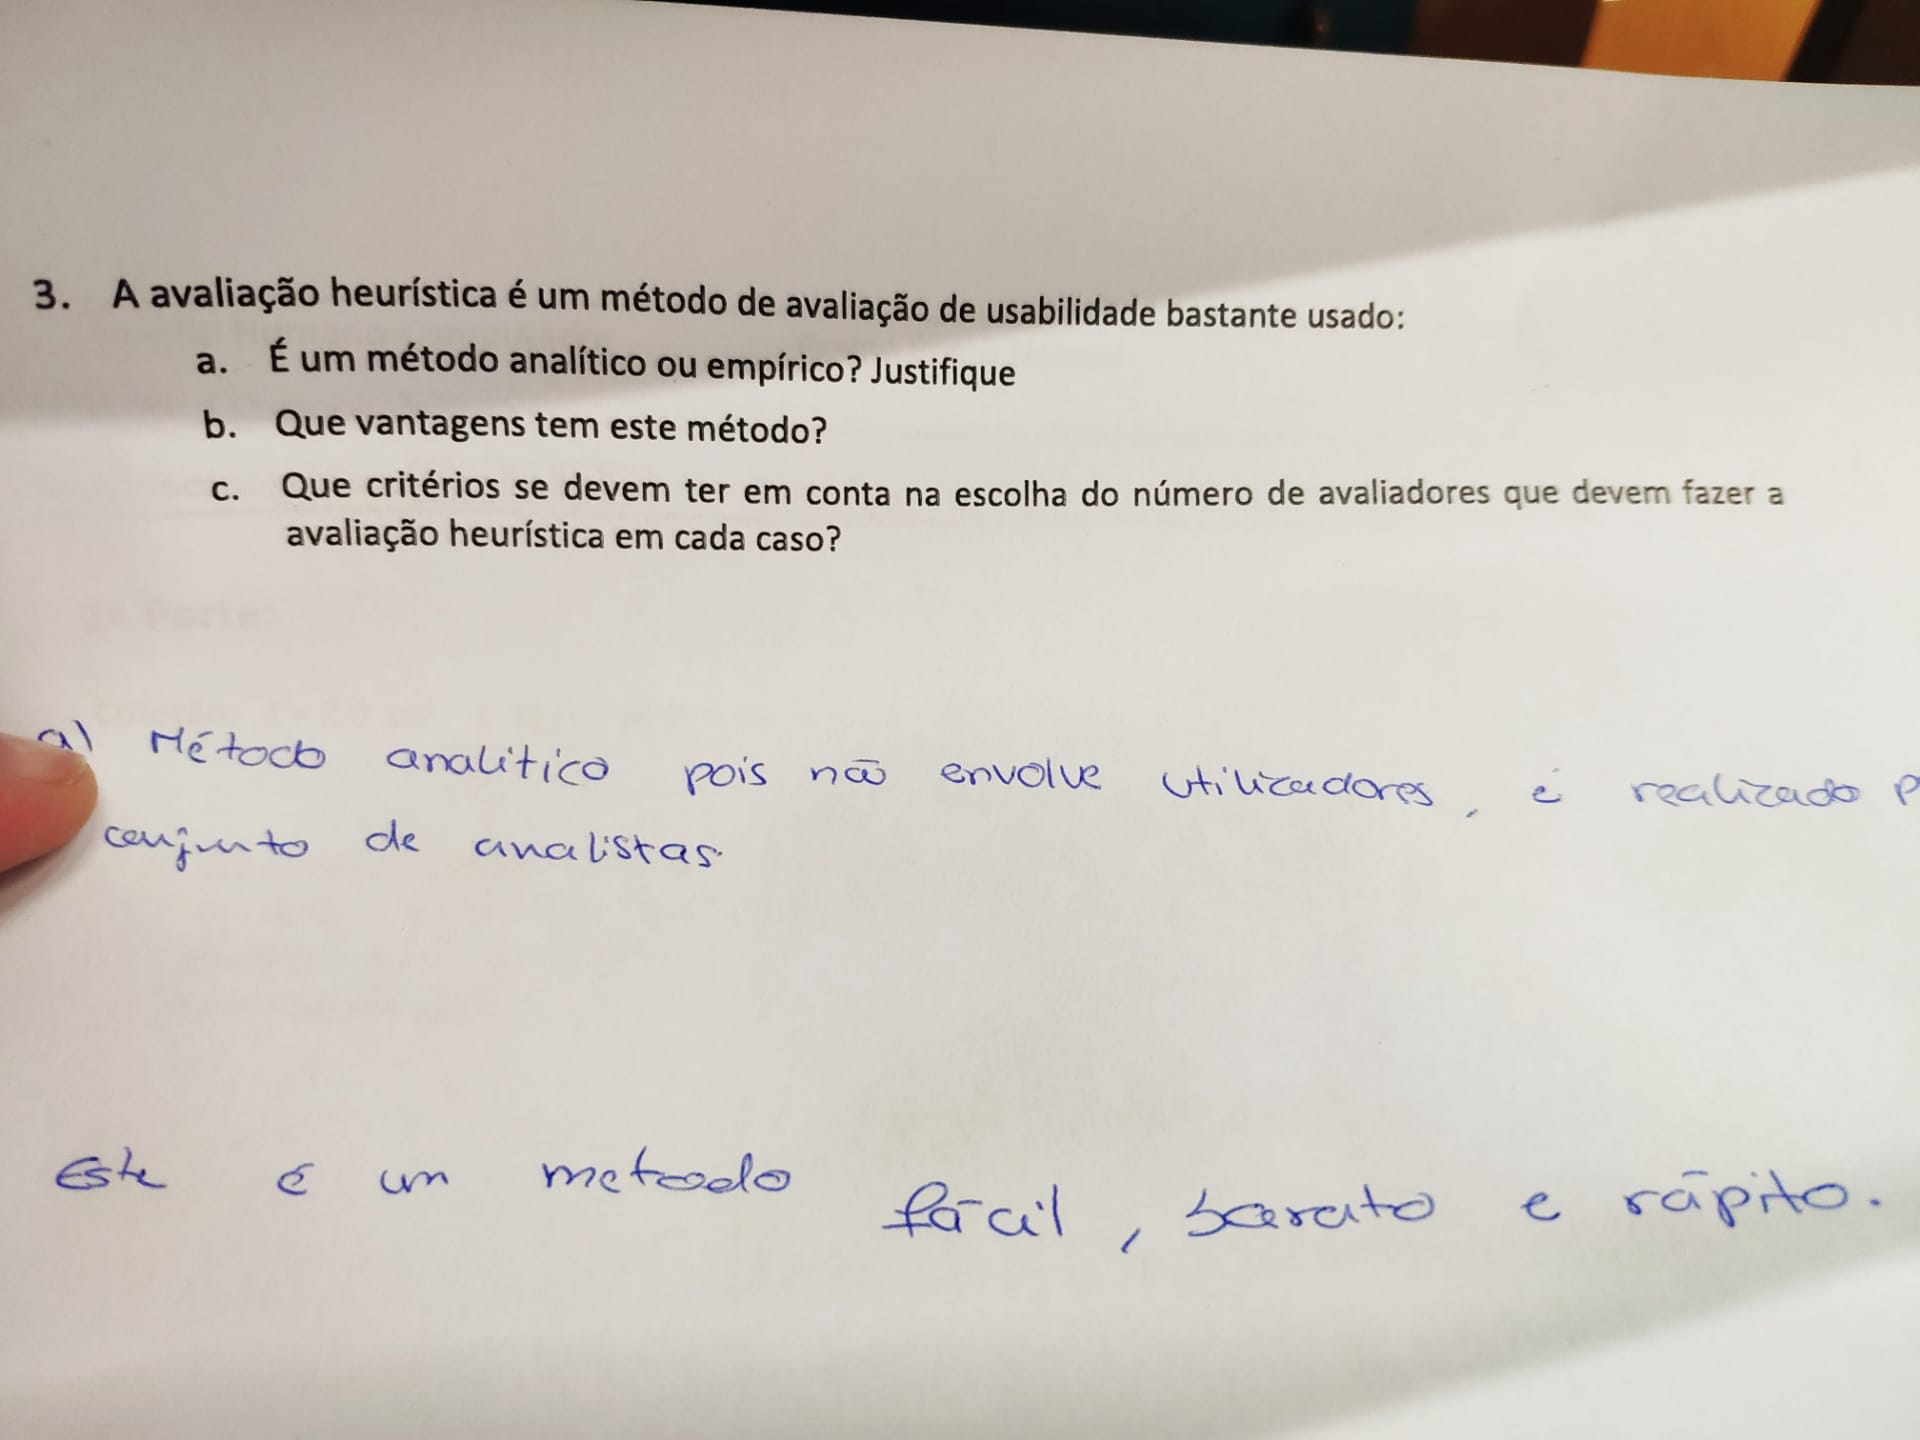 3. A avaliação heurística é um método de avaliação de usabilidade bastante usado:
a. É um método analítico ou empírico? Justifique
b. Que vantagens tem este método?
c. Que critérios se devem ter em conta na escolha do número de avaliadores que devem fazer a
avaliação heurística em cada caso?
a) Método analitico pois não envolve utilizadores, é realizado p
conjunto de analistas.
Este é um metodo fácil, barato e rápito.